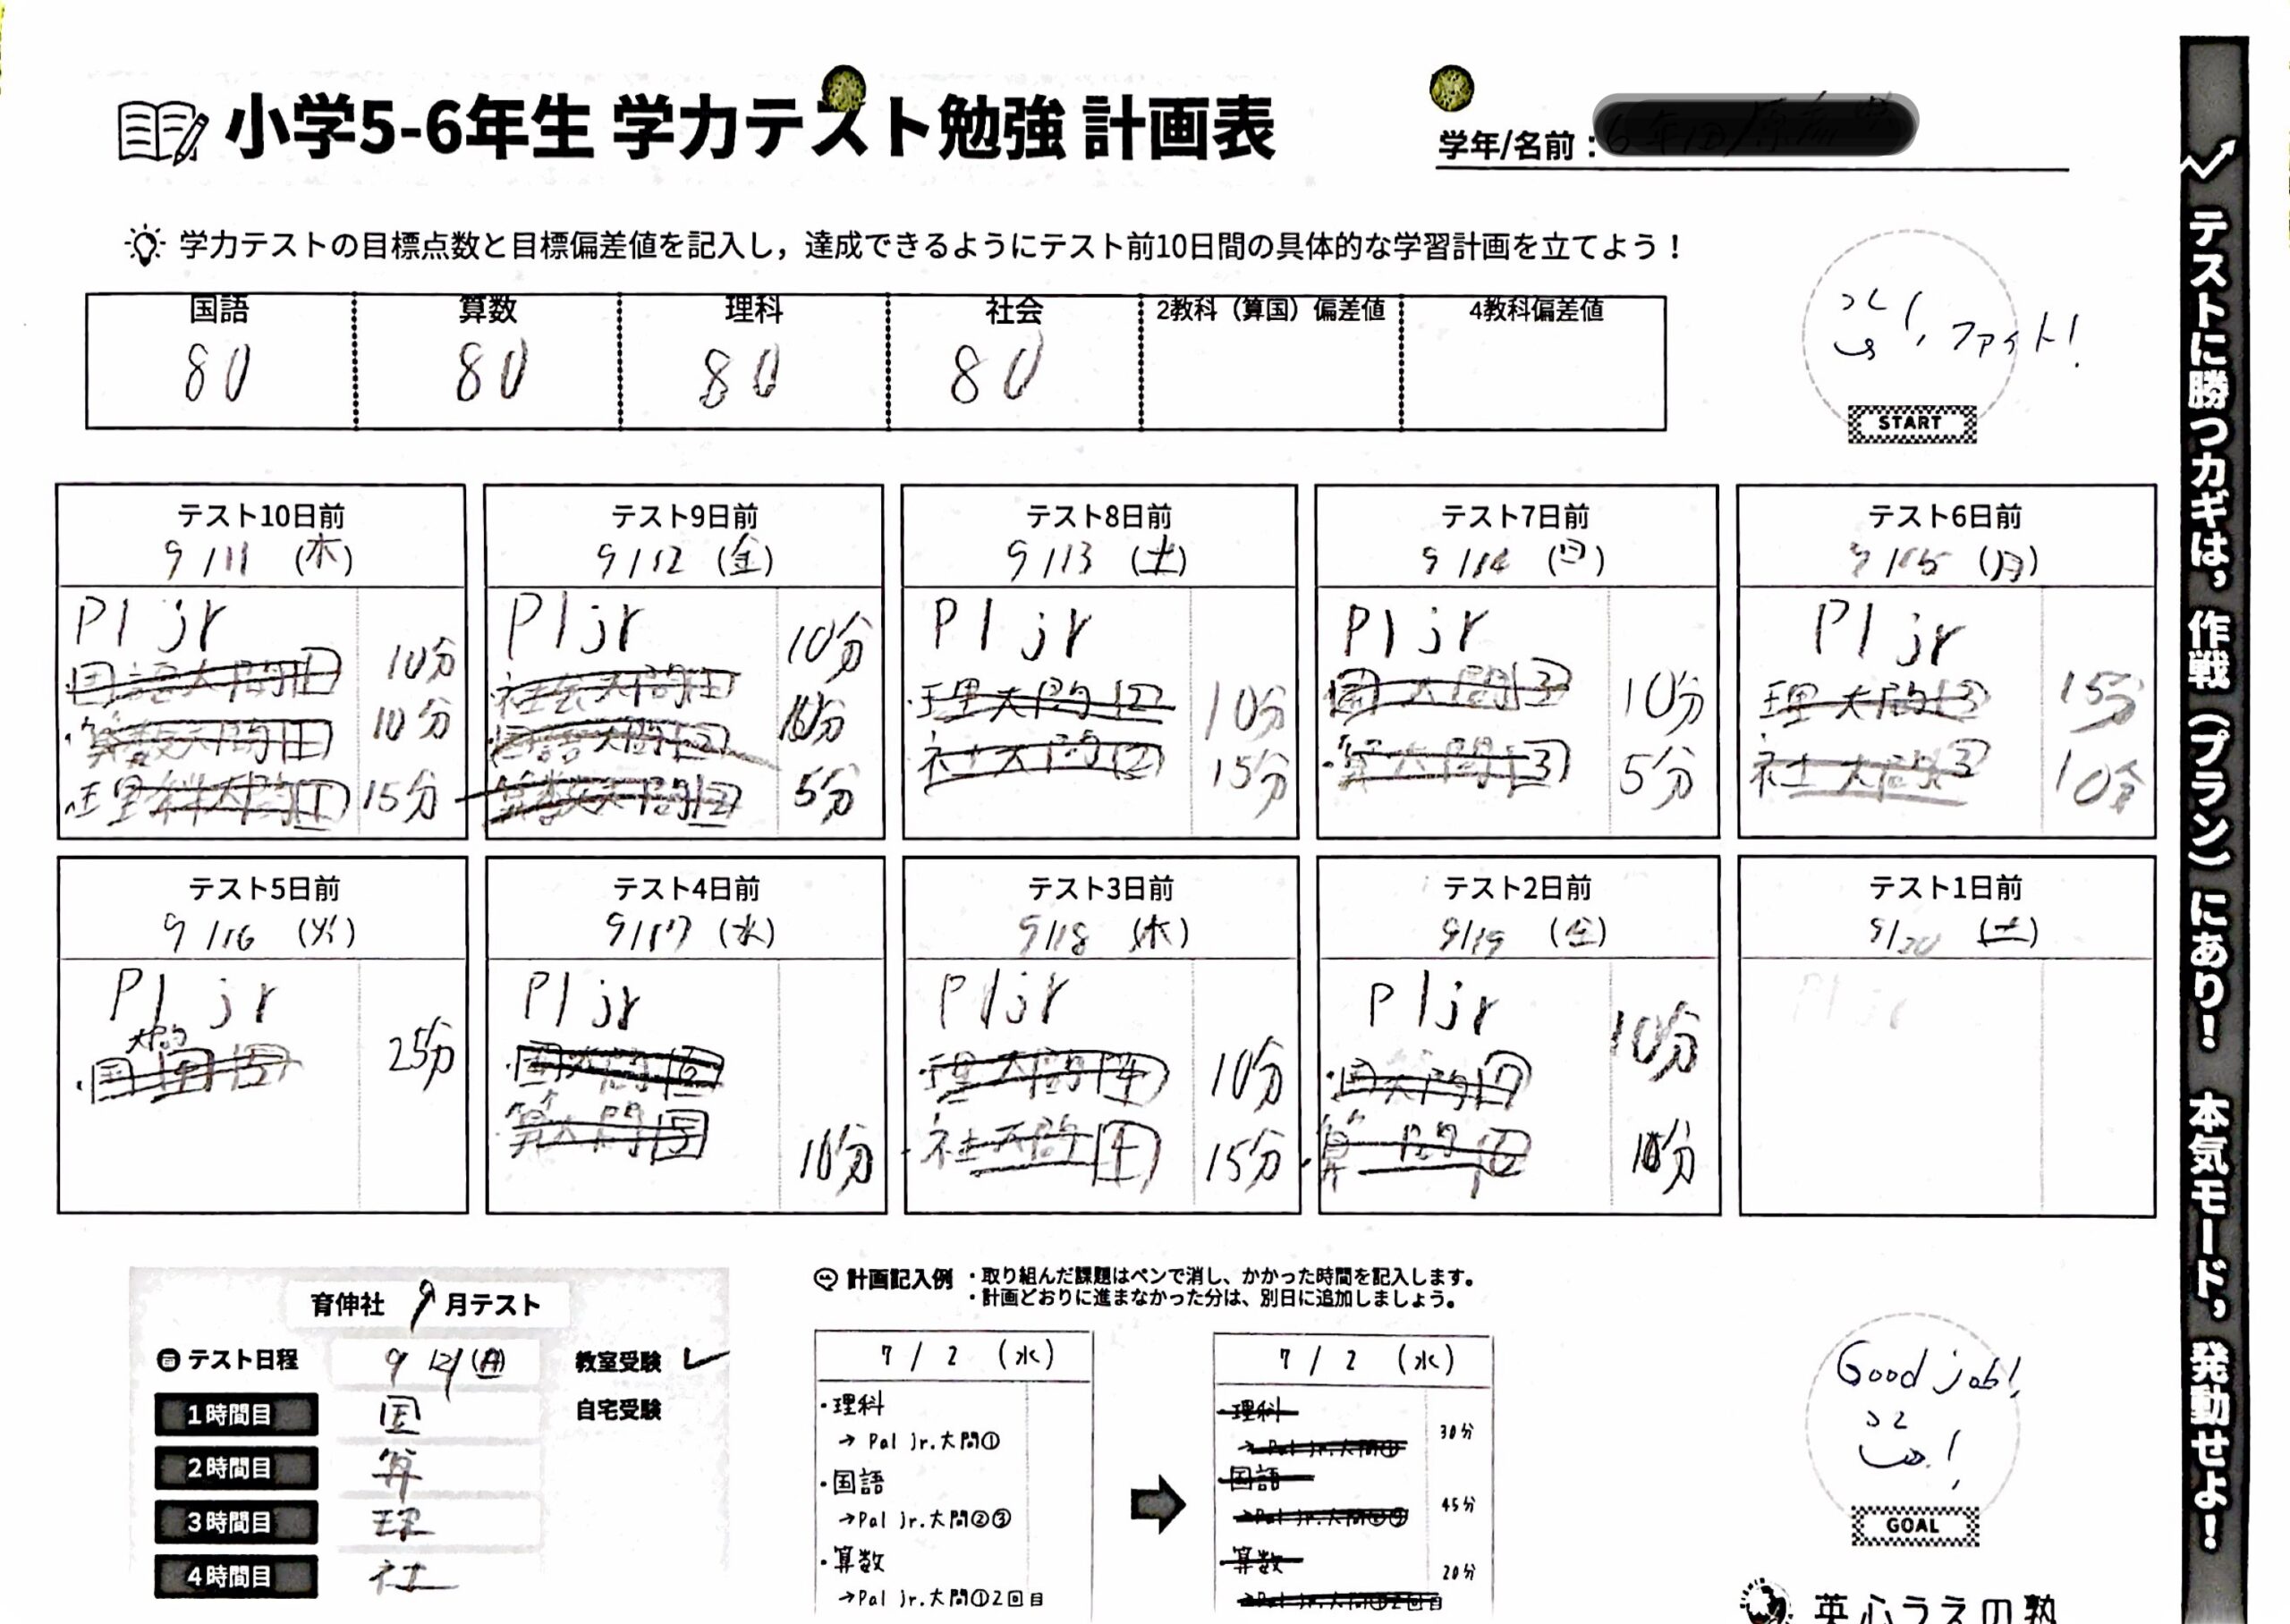 小学5-6年生 学力テスト勉強 計画表
学年/名前：
学力テストの目標点数と目標偏差値を記入し，達成できるようにテスト前10日間の具体的な学習計画を立てよう！
国語 算数 理科 社会 2教科（算国）偏差値 4教科偏差値
80 80 80 80
ファイト!
START
テスト10日前 テスト9日前 テスト8日前 テスト7日前 テスト6日前
9/11 (木) 9/12 (金) 9/13 (土) 9/14 (日) 9/15 (月)
Pl jr
国語大問1 10分
・算数大問1 10分
・理科大問1 15分
Pl jr 10分
・社会大問1 10分
国語大問2
算数大問2 5分
Pl jr
・理大問2 10分
社大問2 15分
Pl jr
国大問3 10分
・算大問3 5分
Pl jr
理大問3 15分
社大問3 10分
テスト5日前 テスト4日前 テスト3日前 テスト2日前 テスト1日前
9/16 (火) 9/17 (水) 9/18 (木) 9/19 (金) 9/20 (土)
Pl jr
大問
・国 5 25分
Pl jr
国大問6
算大問5 10分
Pl jr
・理大問4 10分
・社大問4 15分
Pl jr 10分
・国大問7
・算 問 10分
Pl jr
育伸社 9月テスト
テスト日程 9/21(日) 教室受験 ✓
1時間目 国 自宅受験
2時間目 算
3時間目 理
4時間目 社
計画記入例 ・取り組んだ課題はペンで消し、かかった時間を記入します。
・計画どおりに進まなかった分は、別日に追加しましょう。
7 / 2 (水)
・理科
→ Pal Jr.大問①
・国語
→Pal Jr.大問②③
・算数
→Pal Jr.大問①2回目
7 / 2 (水)
・理科
→ Pal Jr.大問① 30分
・国語
→Pal Jr.大問②③ 45分
・算数
→Pal Jr.大問①2回目 20分
Good job!
GOAL
英心うえの塾
テストに勝つカギは，作戦（プラン）にあり！ 本気モード，発動せよ！